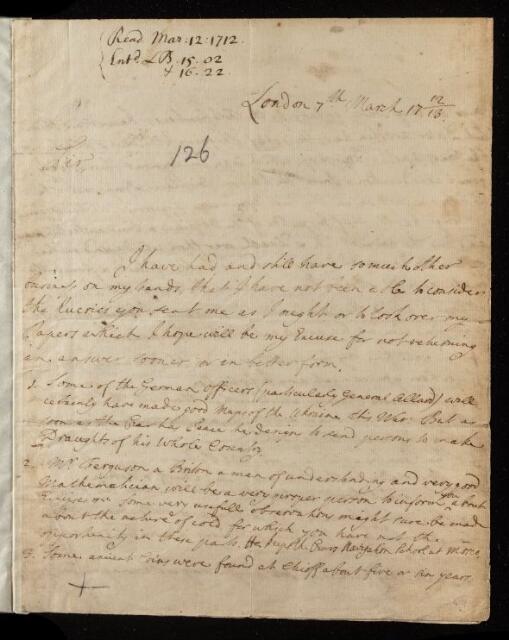 Read Mar: 12: 1712.
Entd LB. 15. 02
+ 16. 22.
London 7th March 17 12/13.
Sir,
126
I have had and still have so much other
business on my hands, that I have not been able to consider
the Queries you sent me as I ought or to look over my
Papers which I hope will be my Excuse for not returning
an answer sooner or in better form.
1 Some of the German officers (particularly General Allard) will
certainly have made good Maps of the Ukraine this War. But as
soon as the Czar has Peace he designs to send persons to make
Draughts of his Whole Country.
2. Mr Ferguson a Briton a man of understanding and very good
Mathematician will be a very proper person to inform you about
some very usefull observations might sure be made
about the nature of cold for which you have not the
opportunity in these parts. He
3. Some ancient Coins were found at Chioff about five or six years